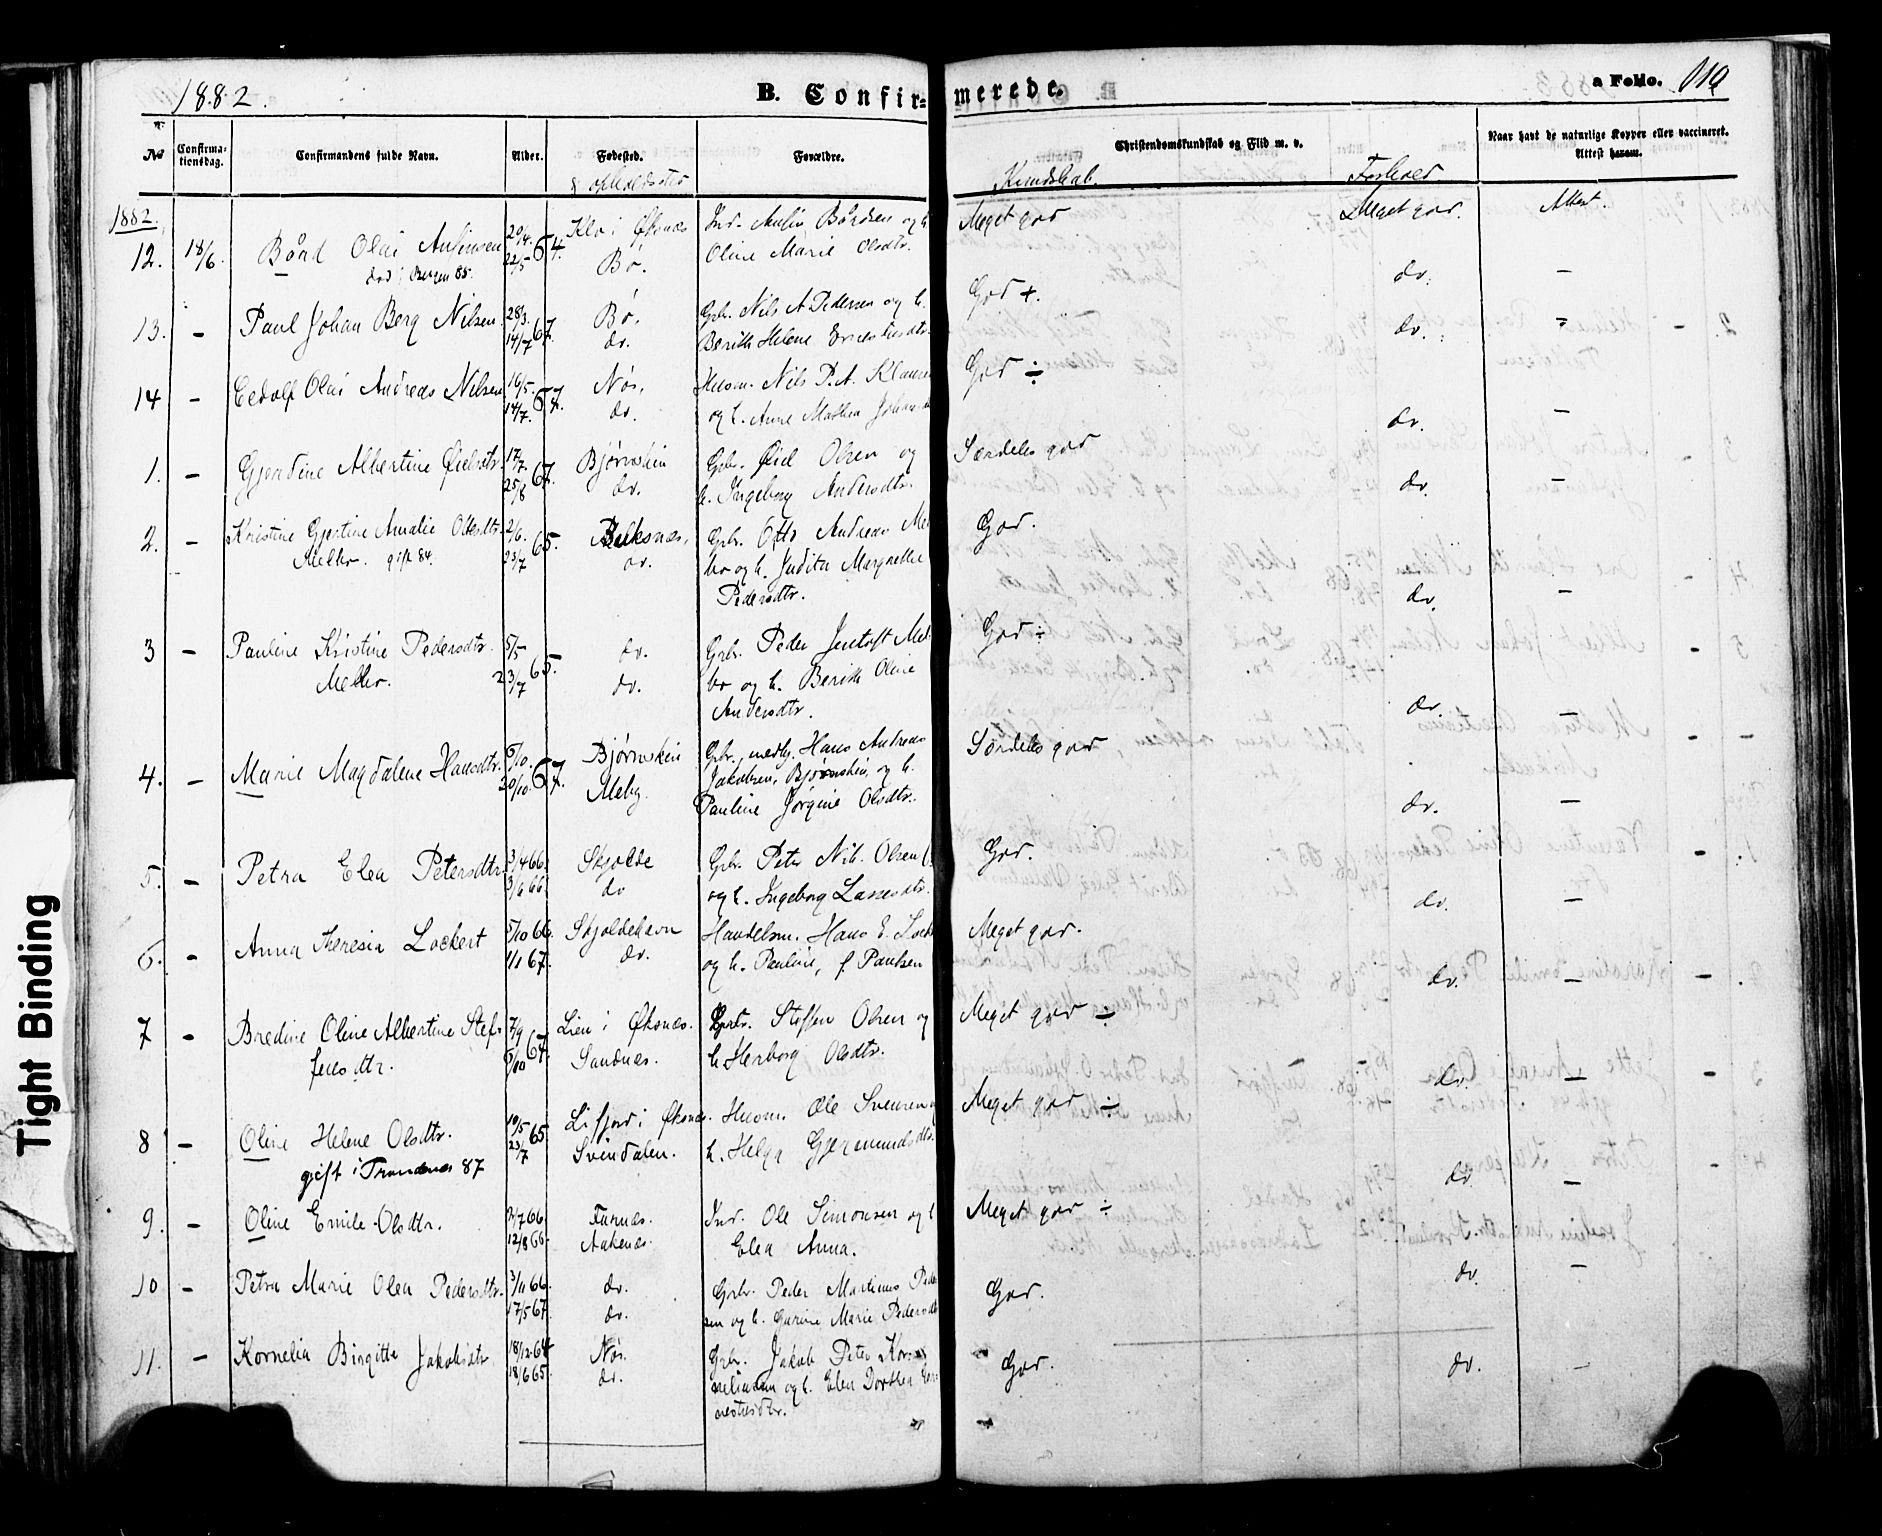 1882.
B. Confir-
merede.
a Folio. 119
No
Confirma-
tionsdag.
Confirmandens fulde Navn.
Alder.
Fødested.
& opholdssted
Forældre.
Christendomskundskab og Flid m. v.
Kundskab.
Forhold
Naar havt de naturlige Kopper eller vaccineret.
Attest herom.
1882.
12. 18/6. Bård Olai Antinsen 20/4. 22/5 64. Klo i Øksnæs Ind. Antin Bårdsen og h. Meget god Meget god. Attest.
død i Bergen 85. Bø. Oline Marie Olsdtr.
13. - Paul Johan Berg Nilsen. 28/3. 67. Bø. Grbr. Nils A Pedersen og h. God +. do. -
14/7 do. Berith Helene Ernestusdtr.
14 - Eedolf Olai Andreas Nilsen 16/5. 67. Nøs. Husm. Nils P. A. Klausen God ÷ do. -
14/7. do. og h. Anne Mathea Johans
1. - Gjendine Albertine Øielsdtr. 17/7. 67. Bjørnskin Grbr. Øiel Olsen og Særdeles god do. -
25/8 do. h. Ingeborg Andersdtr.
2. - Kristine Gjertine Amalie Ottosdtr. 2/6. 65. Grbr. Otto Andreas Mel God. do. -
Melbo. gift 84. 23/7 do. bo og h. Judita Margrethe
Pedersdtr.
3 - Pauline Kristine Pedersdtr. 5/5 65. do. Grbr. Peder Jentoft Mel- God ÷ do. -
Melbo. 23/7 do. bo og h. Berith Oline
Andersdtr.
4. - Marie Magdalene Hansdtr. 6/10. 67. Bjørnskin Grbr. Hans Andreas Særdeles god do. -
20/10. Meby. Jakobsen, Bjørnskin, og h.
Pauline Jørgine Olsdtr.
5. - Petra Elea Petersdtr. 3/4 66. Skjolde Grbr. Peter Nik. Olsen God. do. -
3/6 66. do og h. Ingeborg Larsesdtr.
6. - Anna Theresia Lockert 5/10 66. Skjoldehavn Handelsm. Hans E. Lock Meget god. do. -
1/1 67. do. og h. Pauline, f. Paulsen
7 - Bredine Oline Albertine Stef- 7/9 67. Lien i Øksnæs. Grbr. Steffen Olsen og Meget god ÷ do. -
fensdtr. 6/10 Sandnes. h. Herborg Olsdtr.
8 - Oline Helene Olsdtr. 19/5 65. Lifjord i Øksnæs. Husm. Ole Svensen og Meget god ÷ do. -
gift i Trondenes 87 23/7 Svindalen. h. Helga Gjermundsdtr.
9. - Oline Emilie Olsdtr. 2/7 66. Ind. Ole Simonsen og h Meget god ÷ do. -
12/8 66. Aakenæs. Elea Anna.
10 - Petra Marie Olea Pedersdtr. 3/11 66. do. Grbr. Peder Martinus Peder God. do. -
17/5 67. do. sen og h. Gurine Marie Pedersdtr
11. - Kornelia Birgitte Jakobsdtr. 18/12 64. Nøs. Grbr. Jakob Peter Kor- God. do. -
18/6 65. do. neliussen og h. Elen Dorthea Er
nestusdtr.
Tight Binding